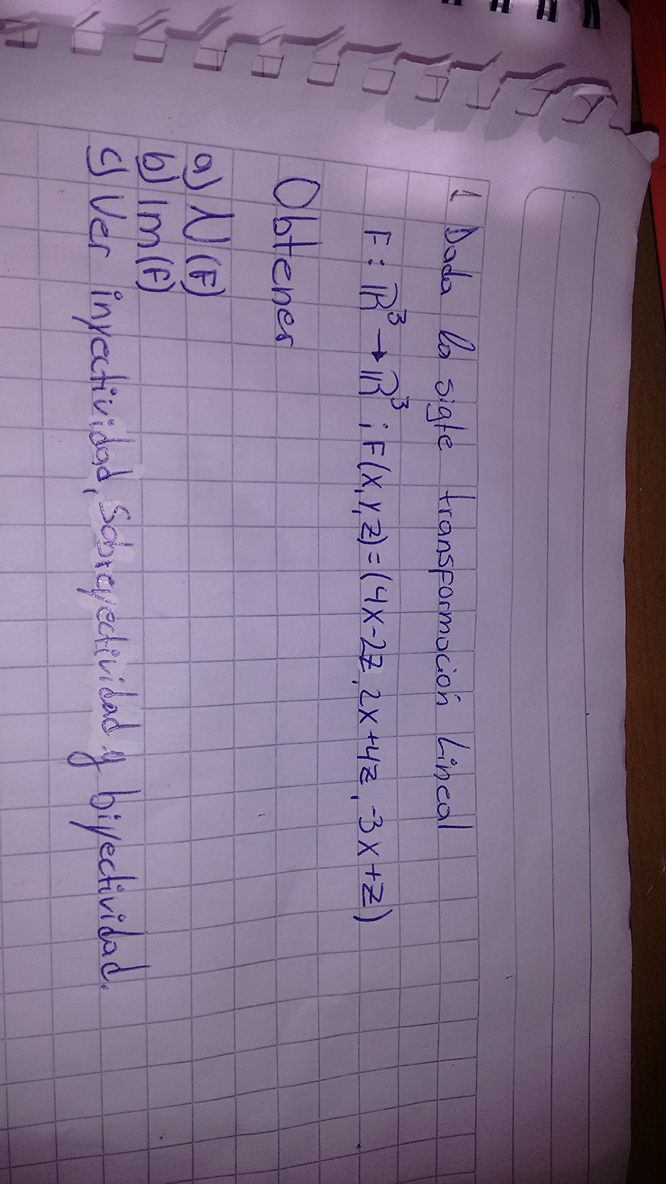 1 Dada la sigte transformación Lineal
F: ℝ³ → ℝ³ ; F(x,y,z) = (4x-2z, 2x+4z, -3x+z)
Obtener
a) N(F)
b) Im(F)
c) Ver inyectividad, Sobreyectividad y biyectividad.